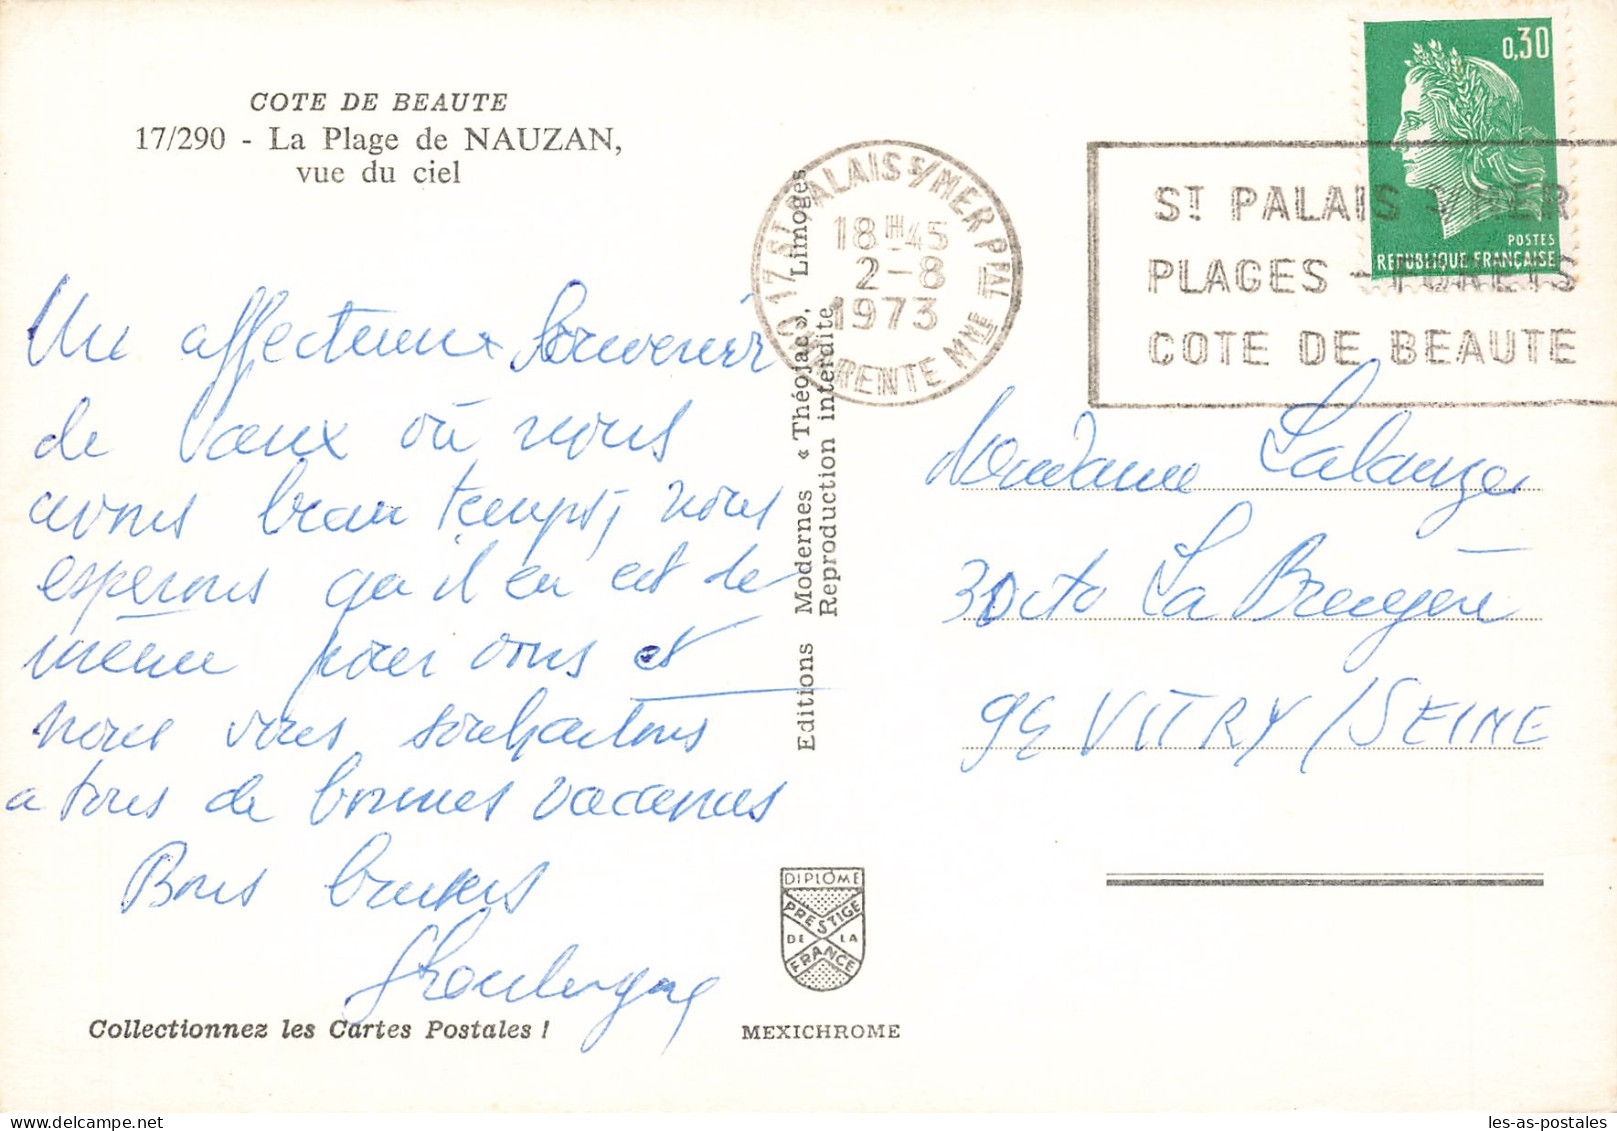 COTE DE BEAUTE
17/290 - La Plage de NAUZAN,
vue du ciel
0,30
POSTES
REPUBLIQUE FRANÇAISE
17 ST PALAIS S/MER PPAL
18H45
2-8
1973
CHARENTE MME
ST PALAIS S/MER
PLAGES - FORETS
COTE DE BEAUTE
Un affectueux Souvenir
de Vaux où nous
avons beau temps, nous
esperons qu'il en est de
même pour vous et
nous vous souhaitons
a tous de bonnes vacances
Bons baisers
Editions Modernes « Théojac », Limoges
Reproduction interdite
Madame
La Bruyère
94 VITRY/SEINE
DIPLÔME
PRESTIGE
DE LA
FRANCE
Collectionnez les Cartes Postales !
MEXICHROME
les-as-postales